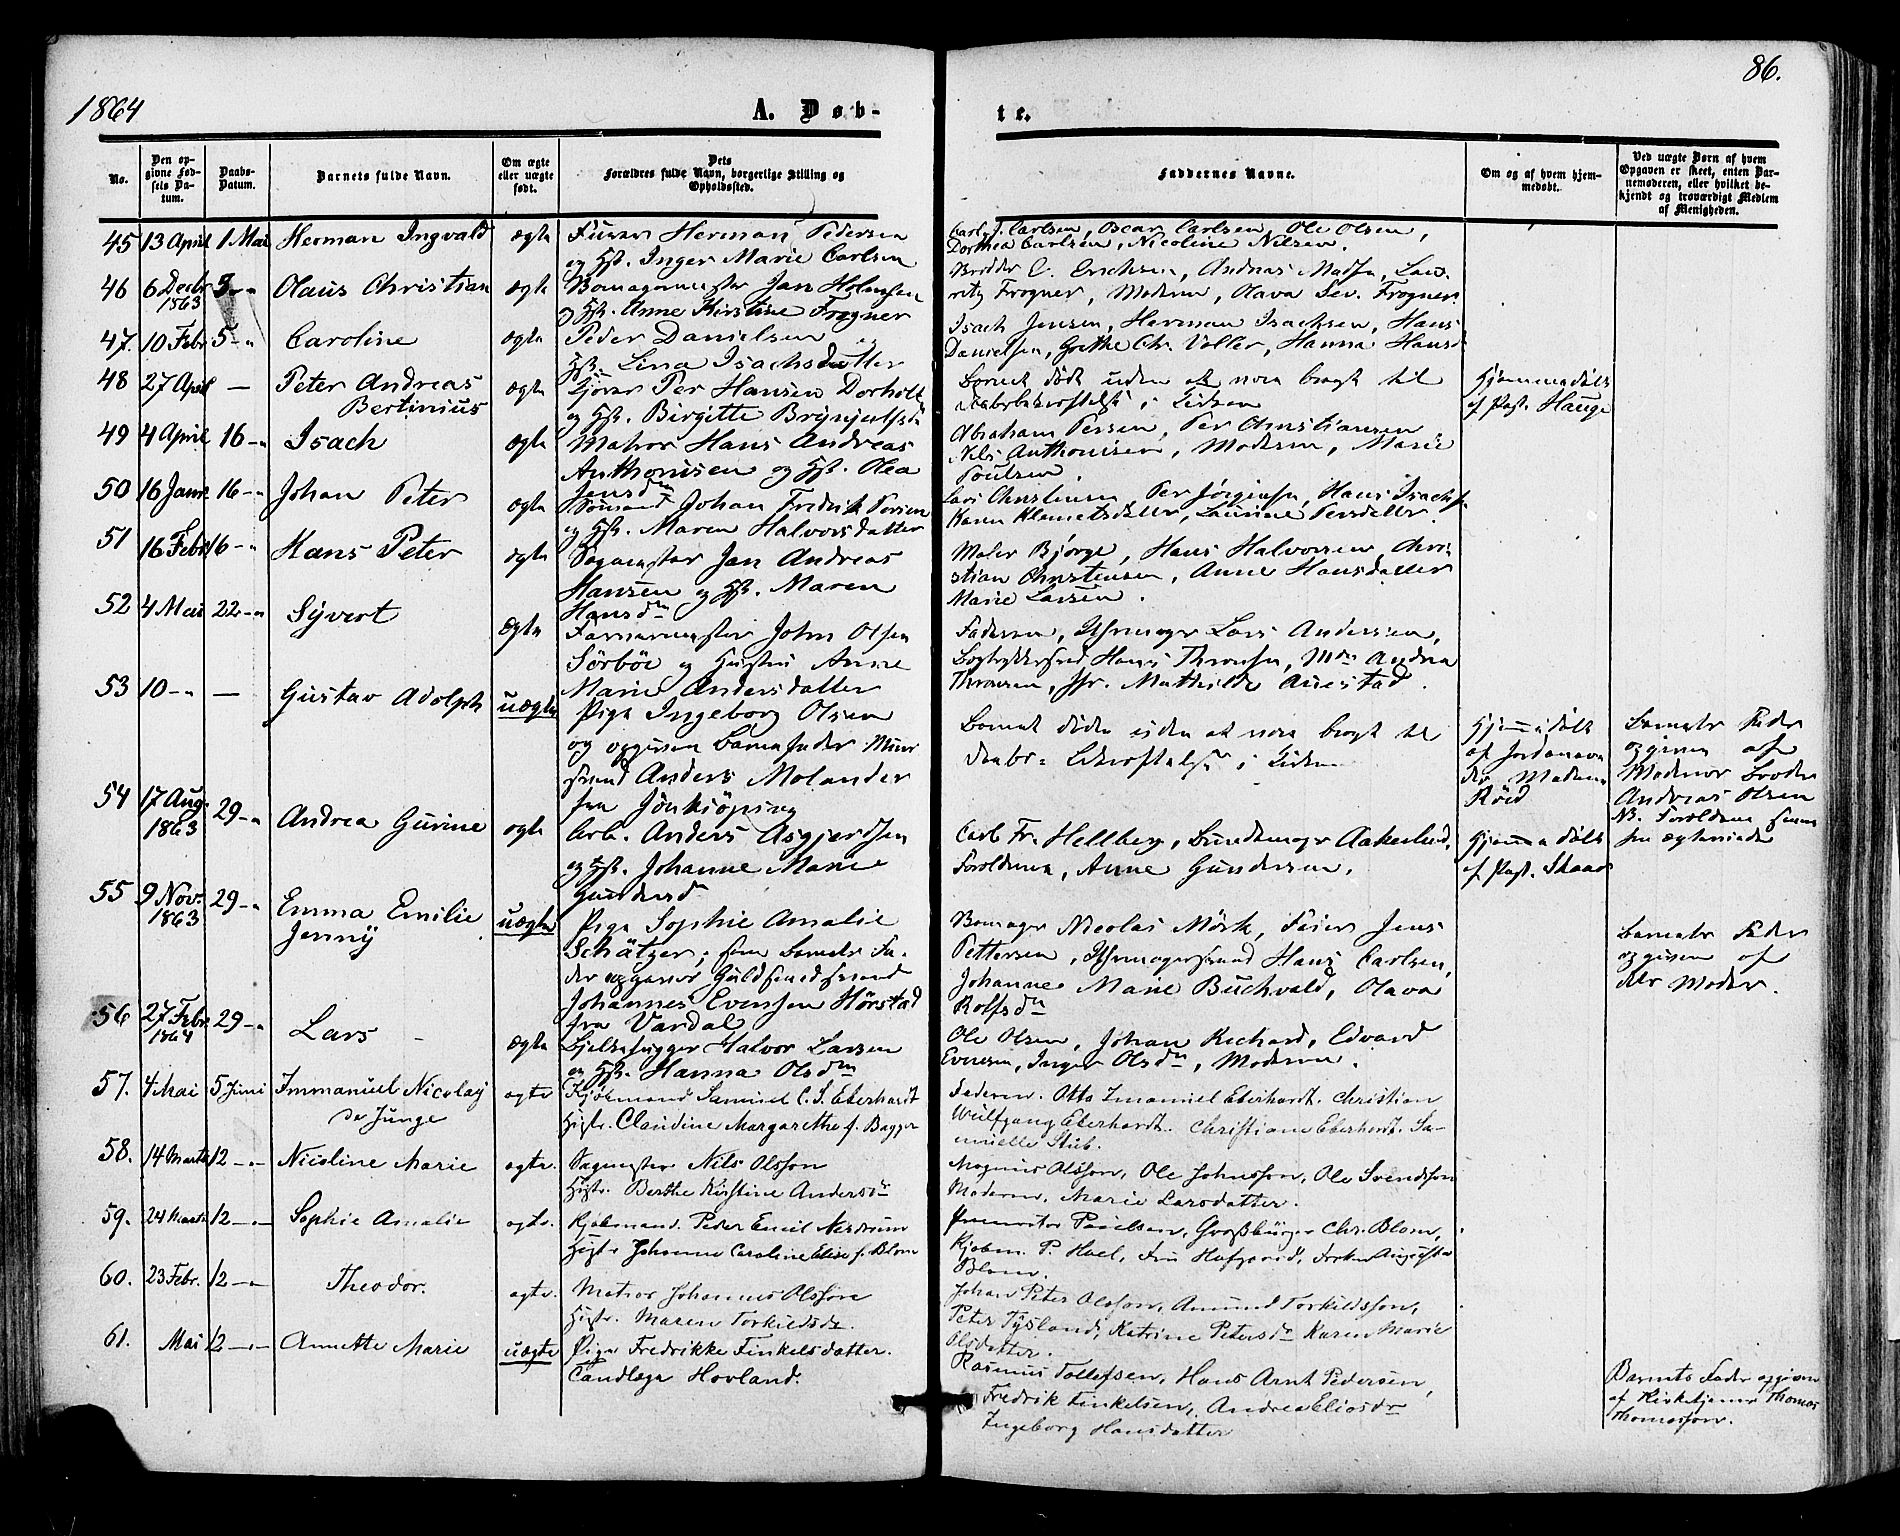 1864
A. Døb-
te.
86.
No.
Den op-
givne Fød-
sels Da-
tum.
Daabs-
Datum.
Barnets fulde Navn.
Om ægte
eller uægte
født.
Dets
Forældres fulde Navn, borgerlige Stilling og
Opholdssted.
Faddernes Navne.
Om og af hvem hjem-
medøbt.
Ved uægte Børn af hvem
Opgaven er skeet, enten Bar-
nemoderen, eller hvilket be-
kjendt og troværdigt Medlem
af Menigheden.
45 13 April 1 Mai Herman Ingvald ægte Furer Herman Pedersen
og Hst. Inger Marie Carlsen
Carl J. Carlsen, Oscar Carlsen, Ole Olsen,
Dorthea Carlsen, Nicoline Nilsen.
46 6 Decbr 1863 5 -"- Olaus Christian ægte Bomagermester Jan Holmsen
og Hst. Anne Kirstine Frogner
C. Erichsen, Andreas Lau-
ritz Frogner, Moderen, Olava Sev. Frogner
47. 10 Febr 5 -"- Caroline ægte Peder Danielsen og
Hst. Lina Isachsdatter
Isach Jensen, Herman Isachsen, Hans
Danielsen, Grethe Chr. Voller, Hanna Hansd
48 27 April — Peter Andreas
Bertinius
ægte Per Hansen Dorholt
og Hst. Birgitte Brynjulfsd
Barnet døde uden at være bragt til
Daabsbekræftelse i Kirken
Hjemmedøbt
af Past. Hauge
49 4 April 16 -"- Isach ægte Matros Hans Andreas
Anthonisen og Hst. Olea
Jensdn
Abraham Persen, Per Christiansen
Nils Anthonisen, Moderen, Marie
Poulsen.
50 16 Janr. 16 -"- Johan Peter ægte Sömand Johan Fredrik Persen
og Hst. Maren Halvorsdatter
Lars Christensen, Per Jörgensen, Hans Isachs.
Karen Klemetsdatter, Laurine Persdatter.
51 16 Febr 16 -"- Hans Peter ægte Sagmester Jan Andreas
Hansen og Hst. Maren
Hansdn
Maler Bjørge, Hans Halvorsen, Chri-
stian Christensen, Anne Hansdatter
Marie Larsen.
52 4 Mai 22 -"- Syvert Ægte Farvermester John Olsen
Sörböe og Hustru Anne
Marie Andersdatter
Faderen, Uhrmager Lars Andersen,
Bogtrykkersvend Hans Thronsen, Mdm Andrea
Thronsen, Jfr. Mathilde Auestad.
53 10 -"- — Gustav Adolph uægte Pige Ingeborg Olsen
og opgiven Barnefader Muur
svend Anders Molander
fra Jönkiöping
Barnet døde uden at være bragt til
Daabs-Bekræftelse i Kirken
Hjemmedøbt
af Jordemo-
der Madam
Röed
Barnets Fader
opgiven af
Moderens Broder
Andreas Olsen
NB. Foreldrene senere
54 17 Aug. 1863 29 -"- Andrea Gurine ægte Arb. Anders Asgjerdsen
og Hst. Johanne Marie
Gundersd
Carl Fr. Hellberg, Buntmager Aakerlund,
Foreldrene, Anne Gundersen.
Hjemmedøbt
af Past. Skaar
55 9 Nov. 1863 29 -"- Emma Emilie
Jenny
uægte Pige Sophie Amalie
Schätzer; som Barnets Fa-
der opgaves Guldsmedsvend
Johannes Evensen Hörstad
fra Vardal
Nicolas Mörk, Feier Jens
Pettersen, Uhrmagersvend Hans Carlsen,
Johanne Marie Buchvald, Olava
Rolfsdn
Barnets Fader
opgiven af
dets Moder.
56 27 Febr. 1864 29 -"- Lars ægte Bjelkehugger Halvor Larsen
og Hst. Hanna Olsdn
Ole Olsen, Johan Richard, Edvard
Evensen, Inger Olsdn, Moderen.
57. 4 Mai 5 Juni Immanuel Nicolay
de Junge
ægte Kjøbmand Samuel C. S. Eberhardt
Hustr. Claudine Margarethe f. Bagger
Faderen. Otto Imanuel Eberhardt. Christian
Wulfgang Eberhardt. Christiane Eberhardt. Sa-
muelle Stub.
58. 14 Marts 12 -"- Nicoline Marie ægte. Sagmester Nils Olsson
Hustr. Berthe Kirstine Andersdr
Magnus Olsson, Ole Johnsson, Ole Svendsson
Moderen, Marie Larsdatter.
59. 24 Marts 12 -"- Sophie Amalie ægte. Kjøbmand. Peder Emil Nerdrum
Hustr Johanne Caroline Elise f. Blom
Paulsen, Chr. Blom,
Kjøbm. P. Hoel, Fru Augusta
Blom.
60. 23 Febr. 12 -"- Theodor. ægte. Matros Johannes Olssen
Hustr. Maren Torkildsdr.
Johan Peter Olsson, Amund Torkildsson,
Peter Tysland, Katrine Petersdr Karen Marie
Olsdatter.
61. Mai 12 -"- Annette Marie uægte Pige Fredrikke Finkelsdatter.
Hovland.
Rasmus Tollefsen, Hans Arnt Pedersen,
Fredrik Finkelsen, Andrea Eliasdr
Ingeborg Hansdatter
Barnets Fader opgiven
af Kirketjener Thomas
Thomassen.